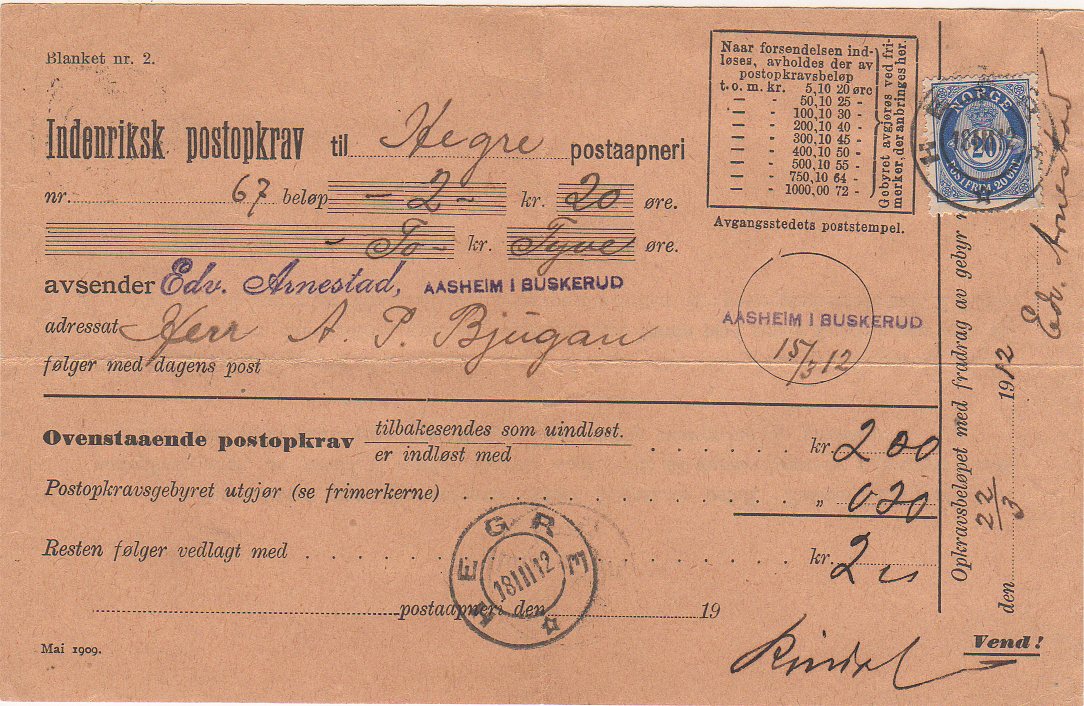 Blanket nr. 2.
Indenriksk postopkrav til Hegre postaapneri
nr. 67 beløp — 2 — kr. 20 øre.
— To — kr. Tyve øre.
avsender Edv. Arnestad, AASHEIM I BUSKERUD
adressat Herr A. P. Bjugan
følger med dagens post
Naar forsendelsen ind-
løses, avholdes der av
postopkravsbeløp
t. o. m. kr. 5,10 20 øre
— - 50,10 25 -
— - 100,10 30 -
— - 200,10 40 -
— - 300,10 45 -
— - 400,10 50 -
— - 500,10 55 -
— - 750,10 64 -
— - 1000,00 72 -
Gebyret avgjørøs ved fri-
merker, der anbringes her.
Avgangsstedets poststempel.
AASHEIM I BUSKERUD
15/3 12
NORGE
20
POSTFRIM 20 ØRE
HEGRE
18 III 12
Ovenstaaende postopkrav tilbakesendes som uindløst.
er indløst med kr. 2 00
Postopkravsgebyret utgjør (se frimerkerne) „ 0 20
Resten følger vedlagt med kr. 2
HEGRE
18 III 12
postaapneri den 19
Mai 1909.
Opkravsbeløpet med fradrag av gebyr
den 22/3 1912
Edv. Arnestad
Vend!